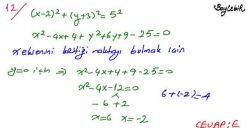 12/ (x-2)²+(y+3)²=5² BayÇelik
x²-4x+4+y²+6y+9-25=0
x eksenini kestiği noktayı bulmak için
y=0 için ⇒ x²-4x+4+9-25=0
x²-4x-12=0
-6 +2 6+(-2)=4
x=6 x=-2
CEVAP:E